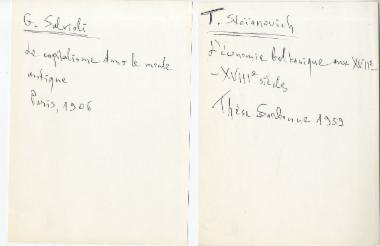 G. Salvioli
Le capitalisme dans le monde
antique
Paris, 1906
T. Stoianovich
L'économie balkanique aux XVIIe
-XVIIIe siècles
Thèse Sorbonne 1952